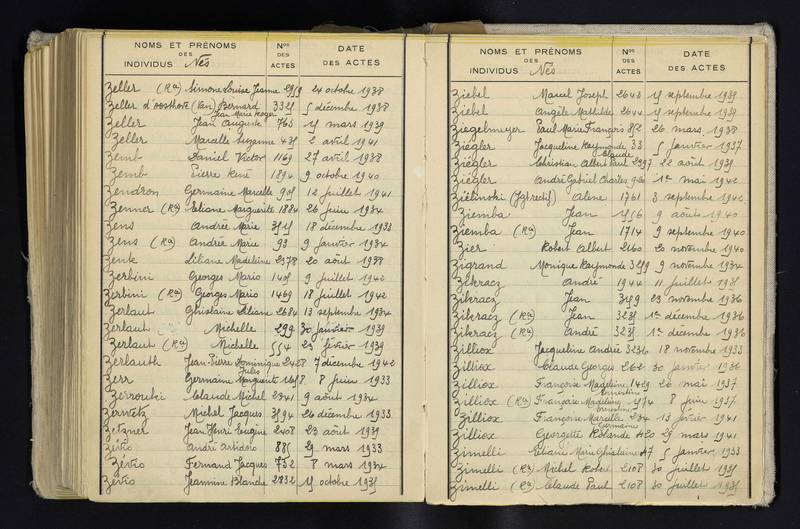 NOMS ET PRÉNOMS
DES
INDIVIDUS Nés
Nos
DES
ACTES
DATE
DES ACTES
Zeller (Rn) Simone Louise Jeanne 24 octobre 1938
Zeller d'oosthove (Van) Bernard 5 décembre 1938
Jean Marie Roger
Zeller Jean Auguste 765 15 mars 1939
Zeller Marcelle Suzanne 2 avril 1941
Zemb Daniel Victor 1169 27 avril 1938
Zemb Pierre René 1894 9 octobre 1940
Zendron Germaine Marcelle 12 juillet 1941
Zenner (Rn) Eliane Marguerite 1884 26 juin 1934
Zens Andrée Marie 18 décembre 1933
Zens (Rn) Andrée Marie 93 9 janvier 1934
Zenk Liliane Madeleine 2378 20 août 1938
Zerbini Georges Mario 9 juillet 1942
Zerbini (Rn) Georges Mario 1469 18 juillet 1942
Zerlaut Ghislaine Liliane 2684 13 septembre 1934
Zerlaut Michelle 299 30 janvier 1939
Zerlaut (Rn) Michelle 554 23 février 1939
Zerlauth Jean-Pierre Dominique 2428 7 décembre 1942
Jules
Zerr Germaine Marguerite 8 juin 1933
Zernouki Claude Michel 2341 9 août 1934
Michel Jacques 3594 26 décembre 1933
Zetzner Jean Henri Eugène 2408 23 août 1935
Zévio André Artidoro 885 29 mars 1933
Zévio Fernand Jacques 732 8 mars 1934
Zévio Jeannine Blanche 2832 15 octobre 1935
NOMS ET PRÉNOMS
DES
INDIVIDUS Nés
Nos
DES
ACTES
DATE
DES ACTES
Ziebel Marcel Joseph 2643 15 septembre 1939
Ziebel Angèle Mathilde 2644 15 septembre 1939
Ziegelmeyer Paul Marie François 852 26 mars 1938
Ziegler Jacqueline Raymonde 33 5 janvier 1937
Claude
Ziegler Christian Albert Paul 22 août 1939
Ziegler André Gabriel Charles 1er mai 1942
Zielinski (Jgt rectif) Alene 1761 3 septembre 1940
Ziemba Jean 1556 9 août 1940
Ziemba (Rn) Jean 1714 9 septembre 1940
Zier Robert Albert 2160 20 novembre 1940
Zigrand Monique Raymonde 9 novembre 1934
Zikracz André 1944 11 juillet 1935
Zikracz Jean 3159 23 novembre 1936
Zikracz (Rn) Jean 3235 1er décembre 1936
Zikracz (Rn) André 3235 1er décembre 1936
Zilliox Jacqueline André 3236 18 novembre 1933
Zilliox Claude Georges 262 30 janvier 1936
Zilliox Françoise Madeleine 1419 26 mai 1937
Ernestine
Zilliox (Rn) Françoise Madeleine 1554 8 juin 1937
Ernestine
Zilliox Françoise Marcelle 234 13 février 1941
Germaine
Zilliox Georgette Rolande 420 29 mars 1941
Zimelli Eliane Marie Ghislaine 47 5 janvier 1933
Zimelli (Rn) Michel Robert 2108 30 juillet 1935
Zimelli (Rn) Claude Paul 2108 30 juillet 1935